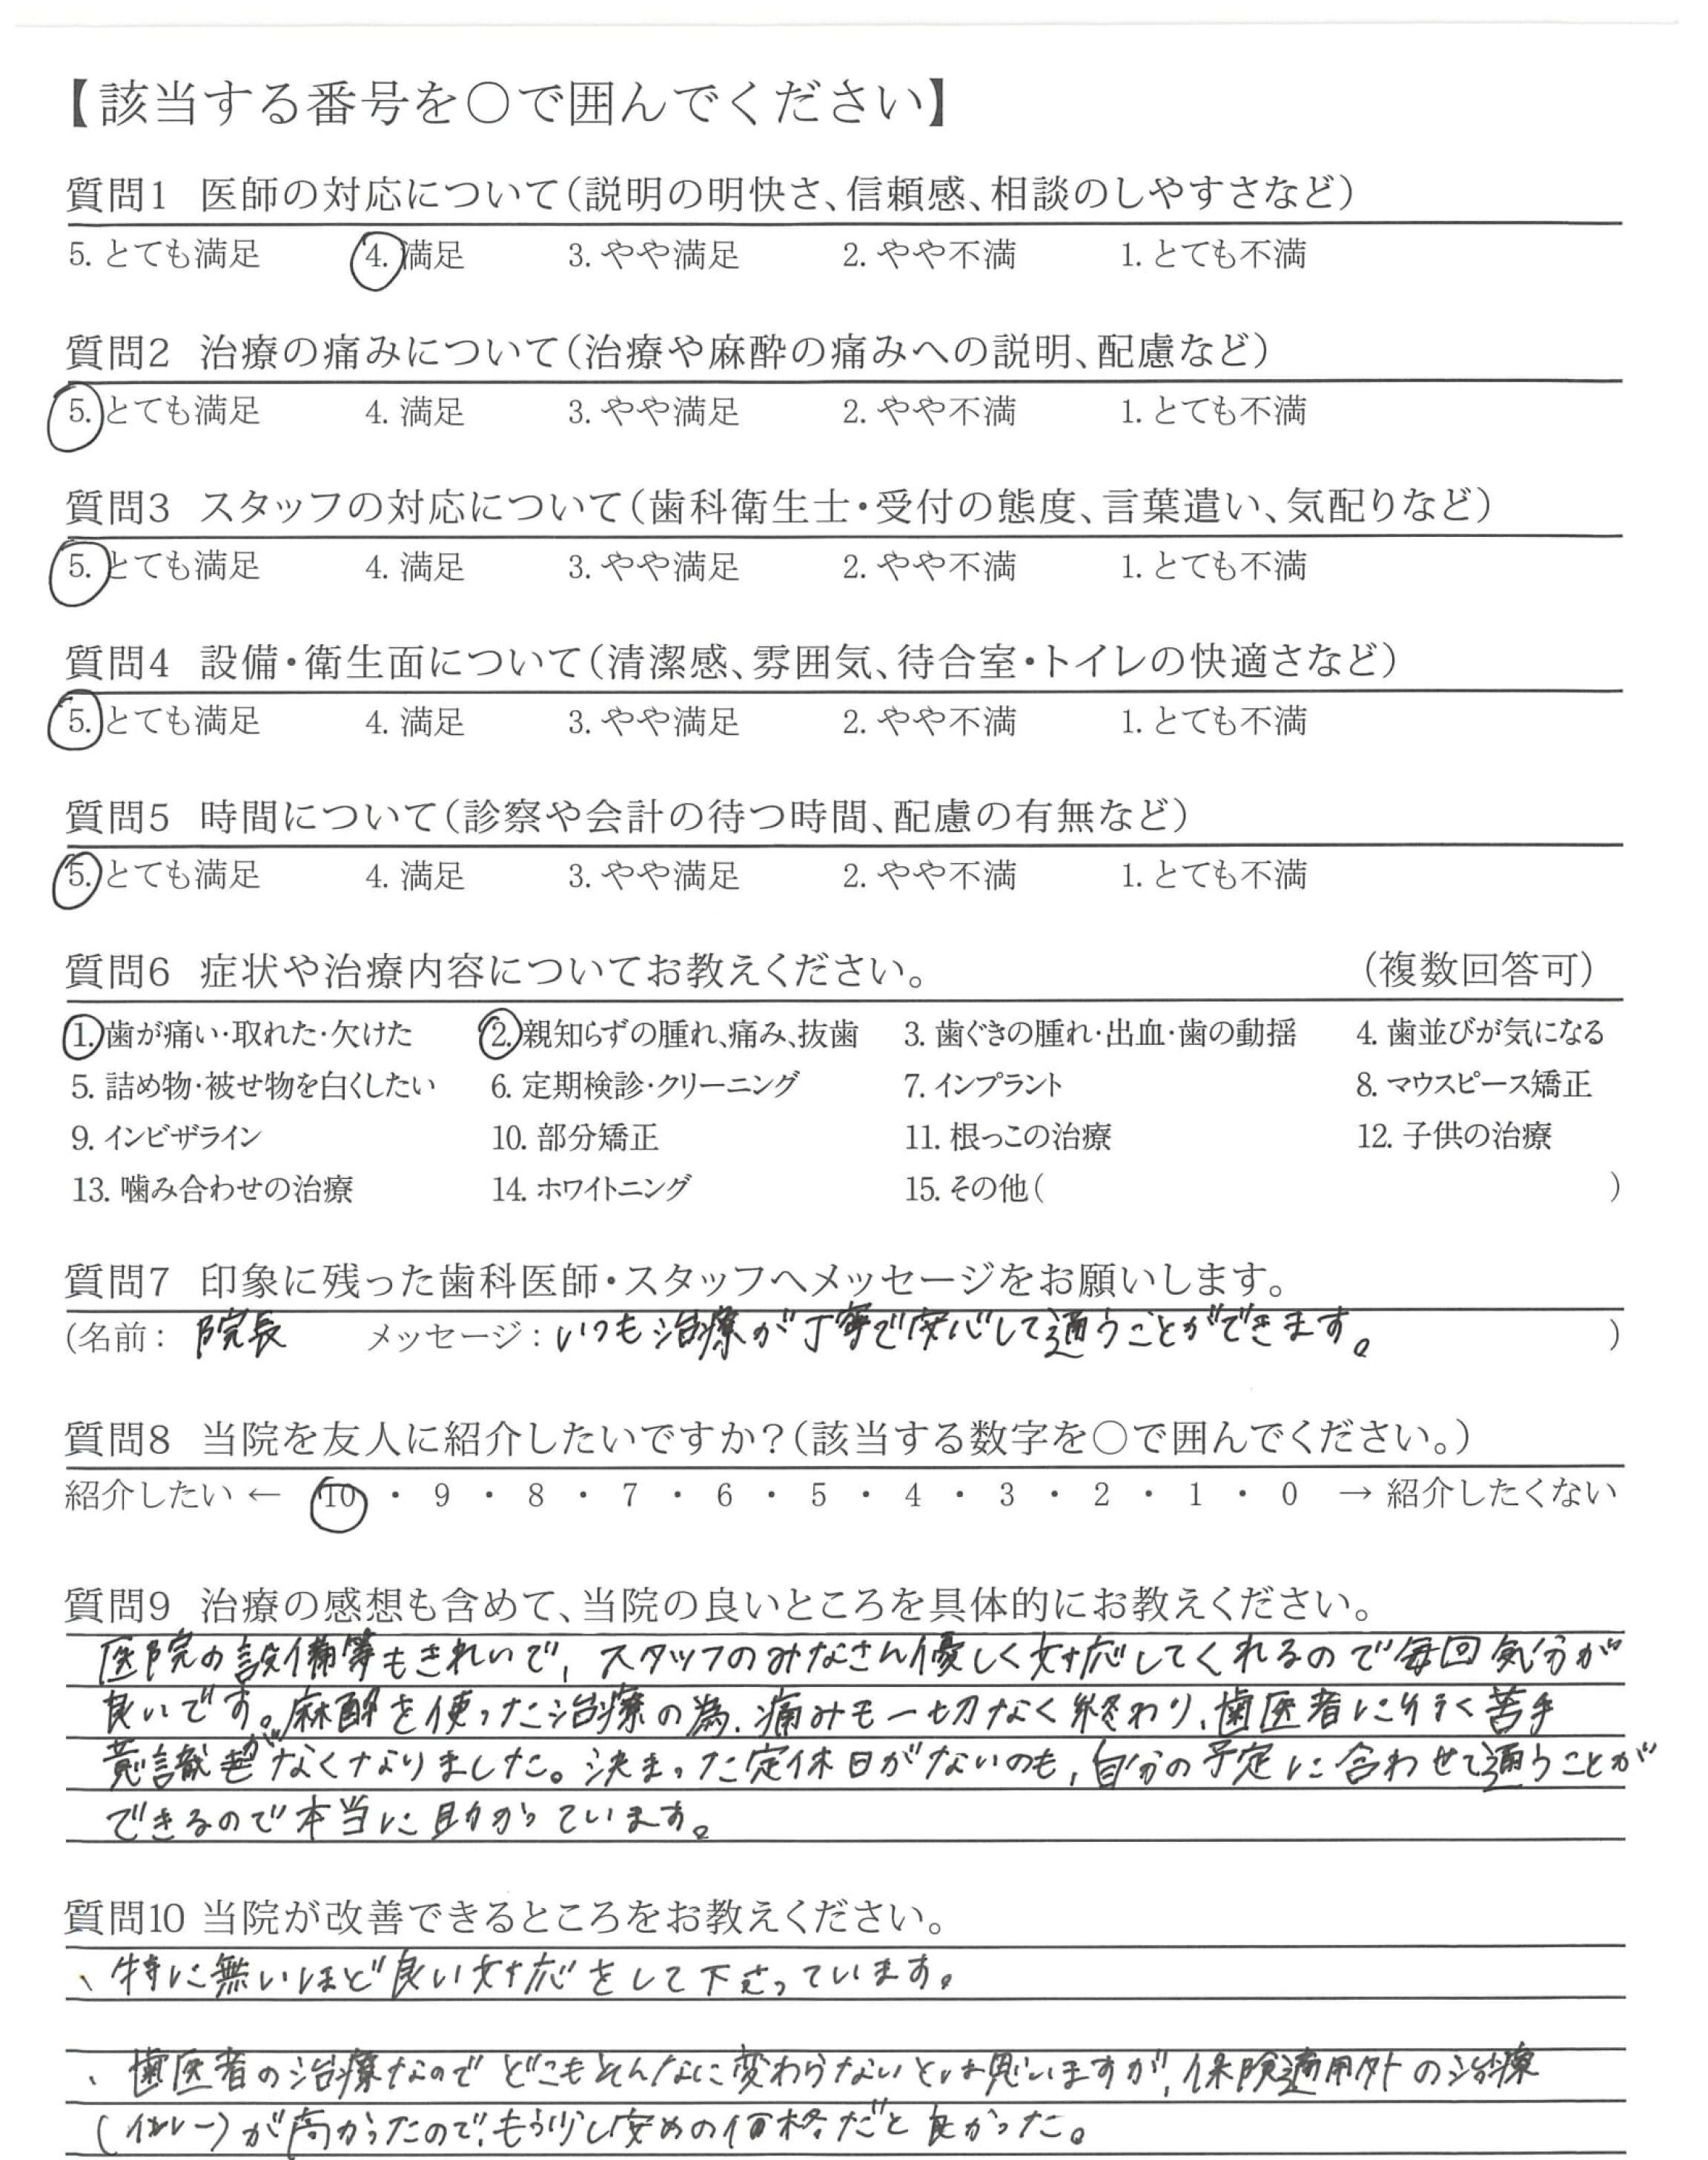 【該当する番号を○で囲んでください】
質問1 医師の対応について(説明の明快さ、信頼感、相談のしやすさなど)
5. とても満足 4. 満足 3. やや満足 2. やや不満 1. とても不満
質問2 治療の痛みについて(治療や麻酔の痛みへの説明、配慮など)
5. とても満足 4. 満足 3. やや満足 2. やや不満 1. とても不満
質問3 スタッフの対応について(歯科衛生士・受付の態度、言葉遣い、気配りなど)
5. とても満足 4. 満足 3. やや満足 2. やや不満 1. とても不満
質問4 設備・衛生面について(清潔感、雰囲気、待合室・トイレの快適さなど)
5. とても満足 4. 満足 3. やや満足 2. やや不満 1. とても不満
質問5 時間について(診察や会計の待つ時間、配慮の有無など)
5. とても満足 4. 満足 3. やや満足 2. やや不満 1. とても不満
質問6 症状や治療内容についてお教えください。 (複数回答可)
1. 歯が痛い・取れた・欠けた 2. 親知らずの腫れ、痛み、抜歯 3. 歯ぐきの腫れ・出血・歯の動揺 4. 歯並びが気になる
5. 詰め物・被せ物を白くしたい 6. 定期検診・クリーニング 7. インプラント 8. マウスピース矯正
9. インビザライン 10. 部分矯正 11. 根っこの治療 12. 子供の治療
13. 噛み合わせの治療 14. ホワイトニング 15. その他( )
質問7 印象に残った歯科医師・スタッフへメッセージをお願いします。
(名前: 院長 メッセージ: いつも治療が丁寧で安心して通うことができます。 )
質問8 当院を友人に紹介したいですか?(該当する数字を○で囲んでください。)
紹介したい ← 10 ・ 9 ・ 8 ・ 7 ・ 6 ・ 5 ・ 4 ・ 3 ・ 2 ・ 1 ・ 0 → 紹介したくない
質問9 治療の感想も含めて、当院の良いところを具体的にお教えください。
医院の設備等もきれいで、スタッフのみなさん優しく対応してくれるので毎回気分が
良いです。麻酔を使った治療の為、痛みも一切なく終わり、歯医者に行く苦手
意識がなくなりました。決まった定休日がないのも、自分の予定に合わせて通うことが
できるので本当に助かっています。
質問10 当院が改善できるところをお教えください。
、特に無いほど良い対応をして下さっています。
、歯医者の治療なのでどこもそんなに変わらないとは思いますが、保険適用外の治療
(インレー)が高かったので、もう少し安めの価格だと良かった。